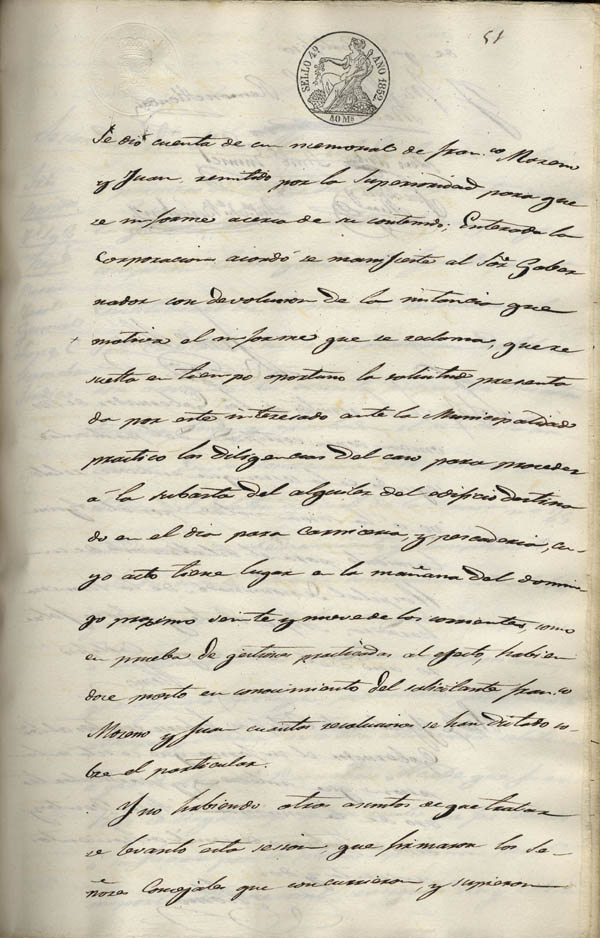 51
SELLO 4º AÑO 1852
40 Ms
Se dió cuenta de un memorial de Fran.co Moreno
y Juan, remitido por la Superioridad para que
se informe acerca de su contenido; Enterada la
Corporacion acordó se manifieste al Sõr Gober
nador con devolucion de la instancia que
motiva el informe que se reclama, que re
suelta en tiempo oportuno la solicitud presenta
da por este interesado ante la Municipalidad
practicó las diligencias del caso para proceder
á la subasta del alquiler del edificio destina
do en el dia para carniceria, y pescaderia, cu-
yo acto tiene lugar en la mañana del domin
go proximo veinte y nueve de los corrientes, como
en prueba de gestiones practicadas al efecto, habien
dose puesto en conocimiento del solicitante Fran.co
Moreno y Juan cuantas resoluciones se han dictado so
bre el particular.
Y no habiendo otros asuntos de que tratar
se levantó esta sesion, que firmaron los Se-
ñores Concejales que concurrieron, y supieron